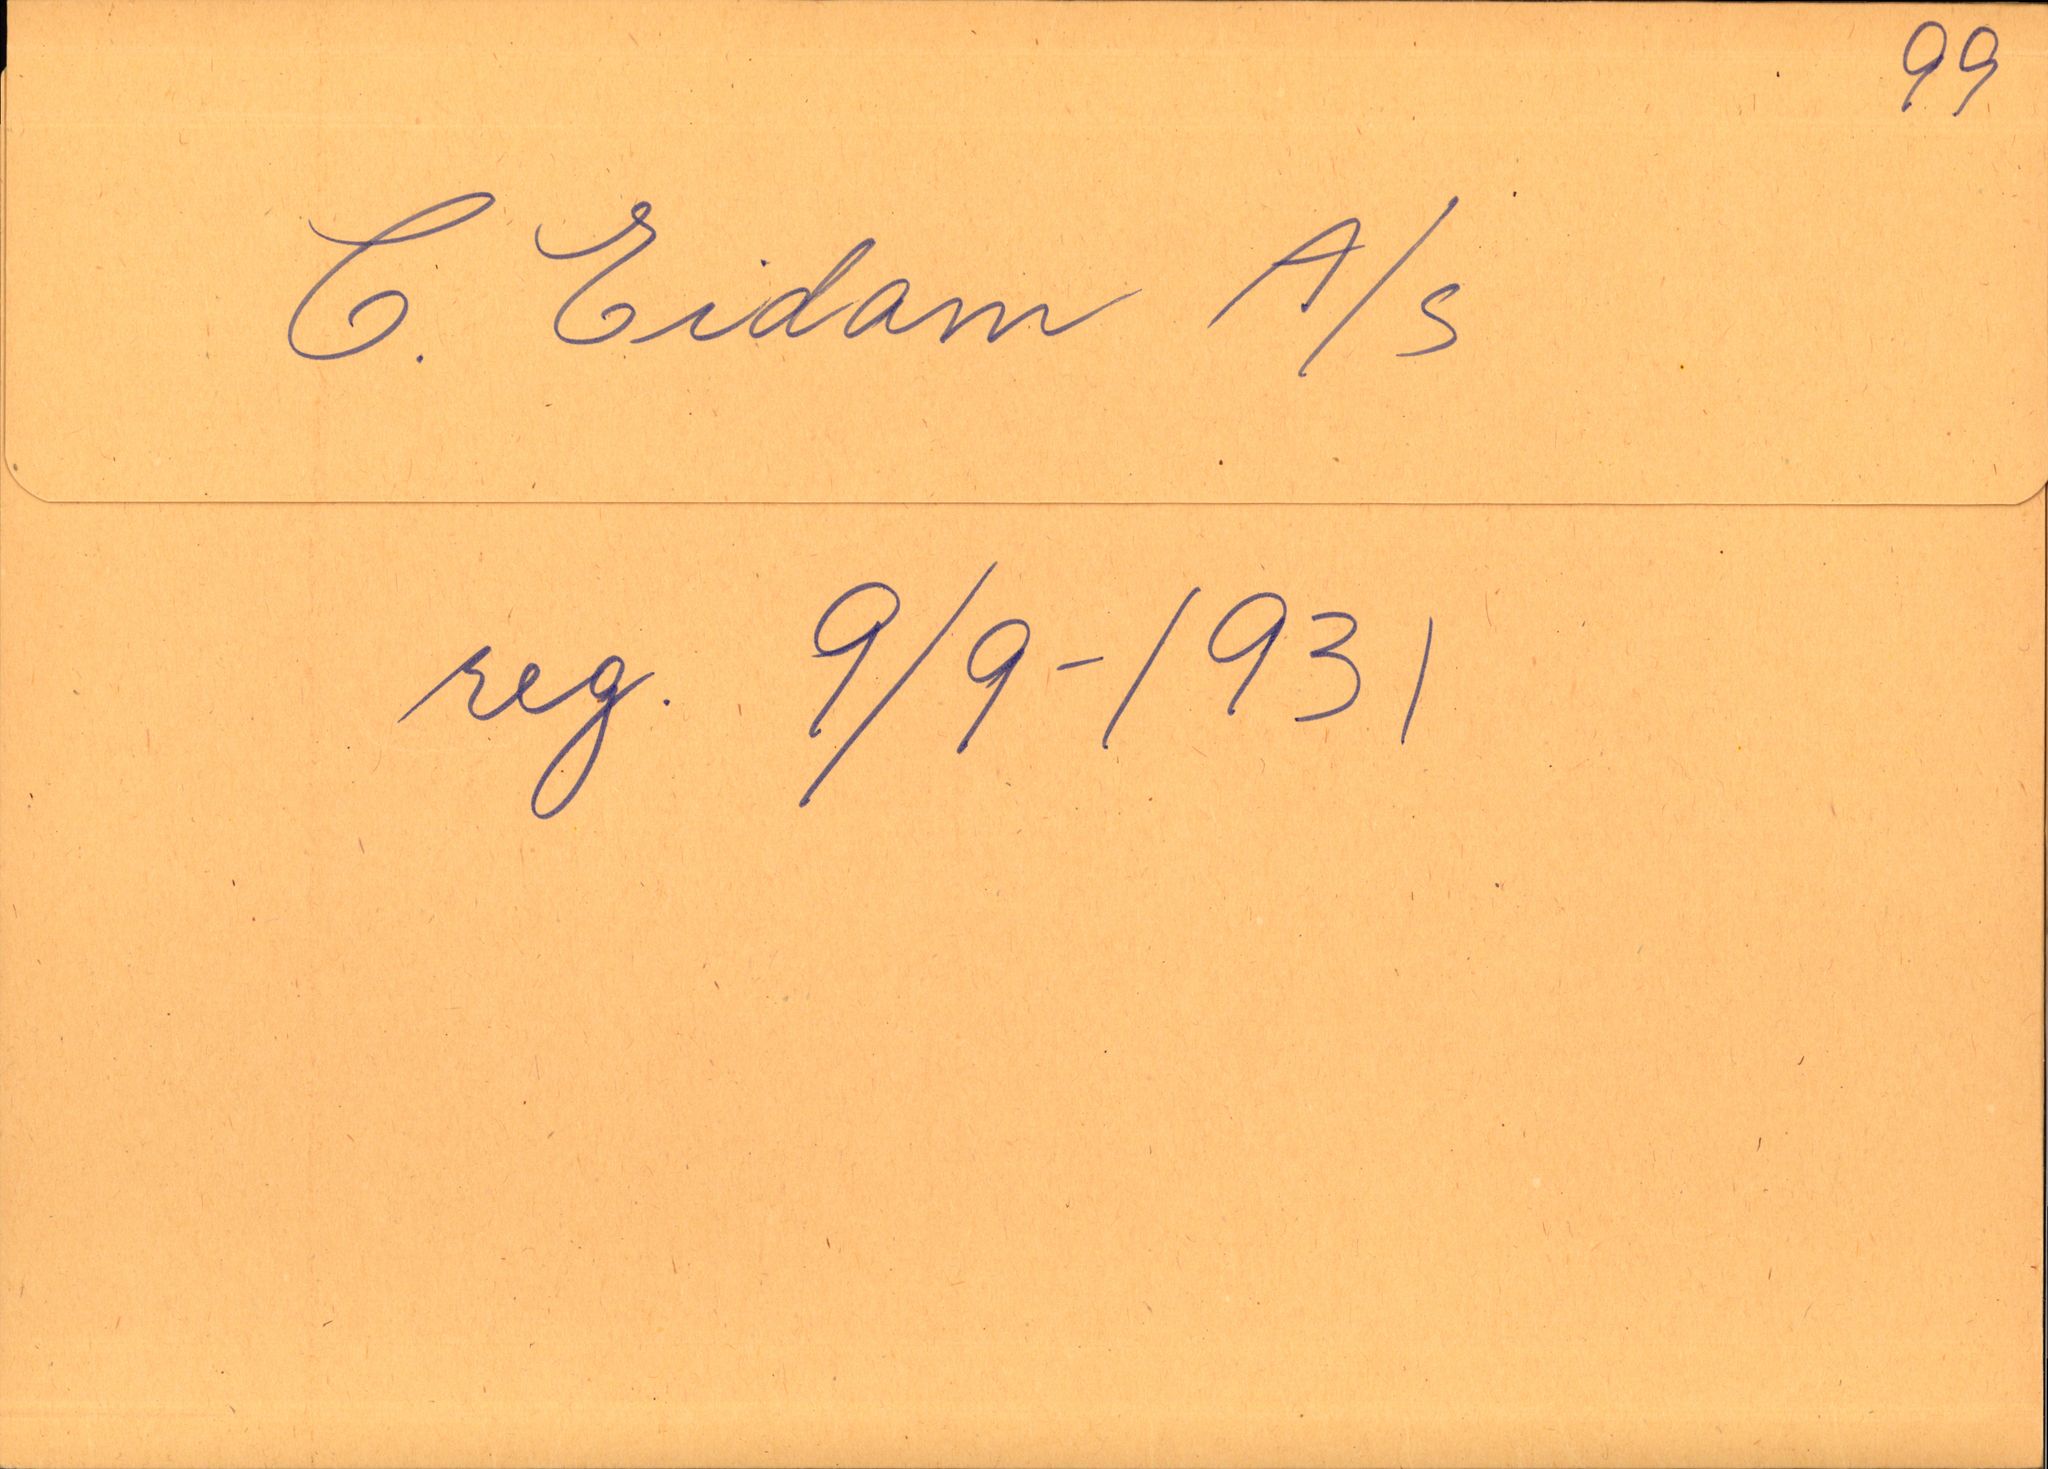 99
C. Eidam A/s
reg. 9/9-1931